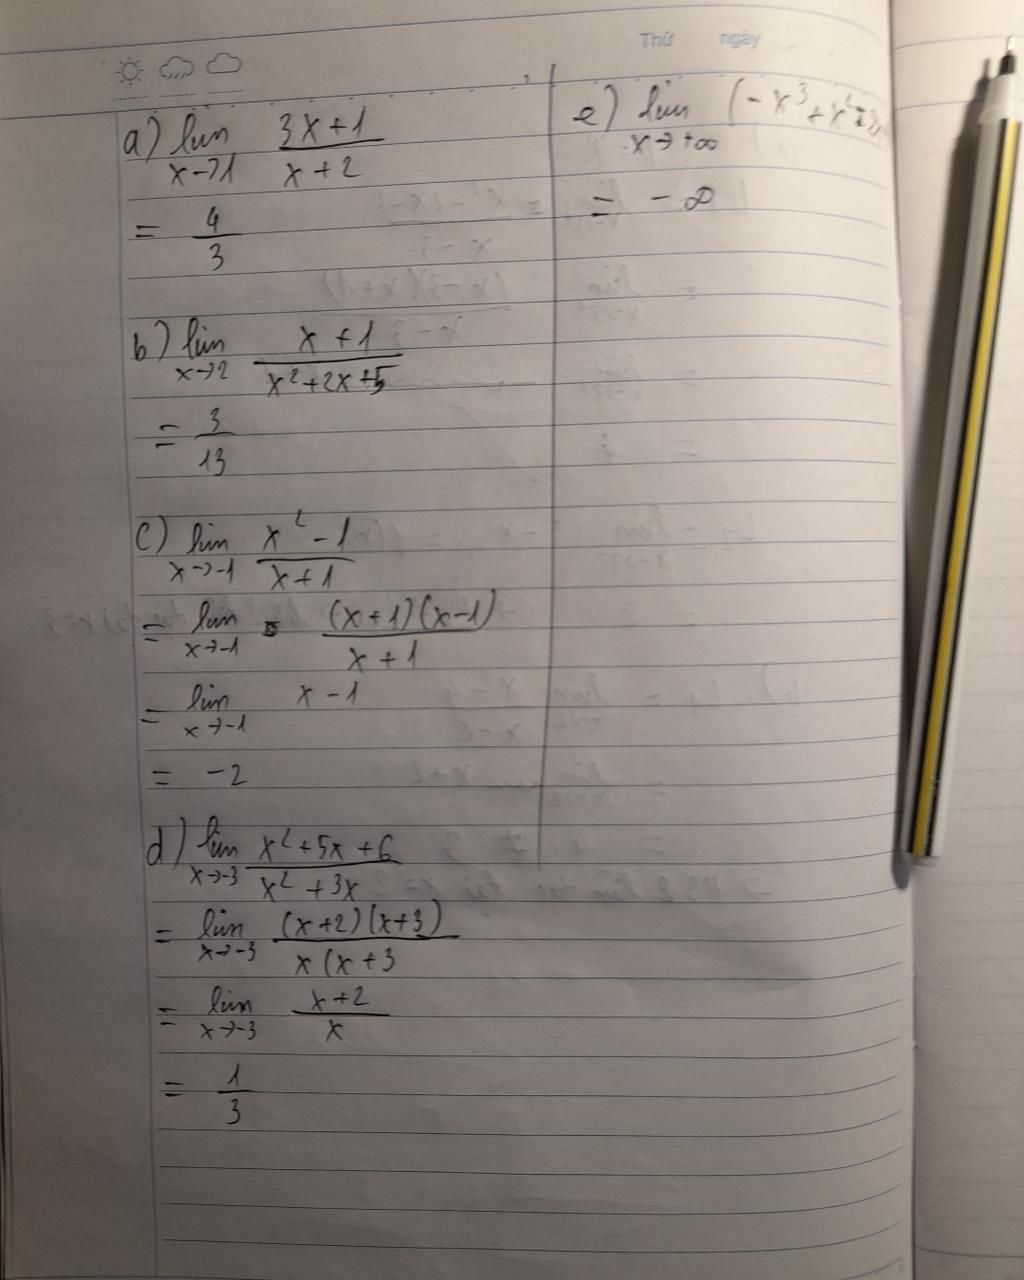 Thứ ngày
a) lim 3x+1
x→1 x+2
= 4
3
b) lim x+1
x→2 x²+2x+5
= 3
13
c) lim x²-1
x→-1 x+1
= lim (x+1)(x-1)
x→-1 x+1
= lim x-1
x→-1
= -2
d) lim x²+5x+6
x→-3 x²+3x
= lim (x+2)(x+3)
x→-3 x(x+3
= lim x+2
x→-3 x
= 1
3
e) lim (-x³+x²
x→+∞
= -∞